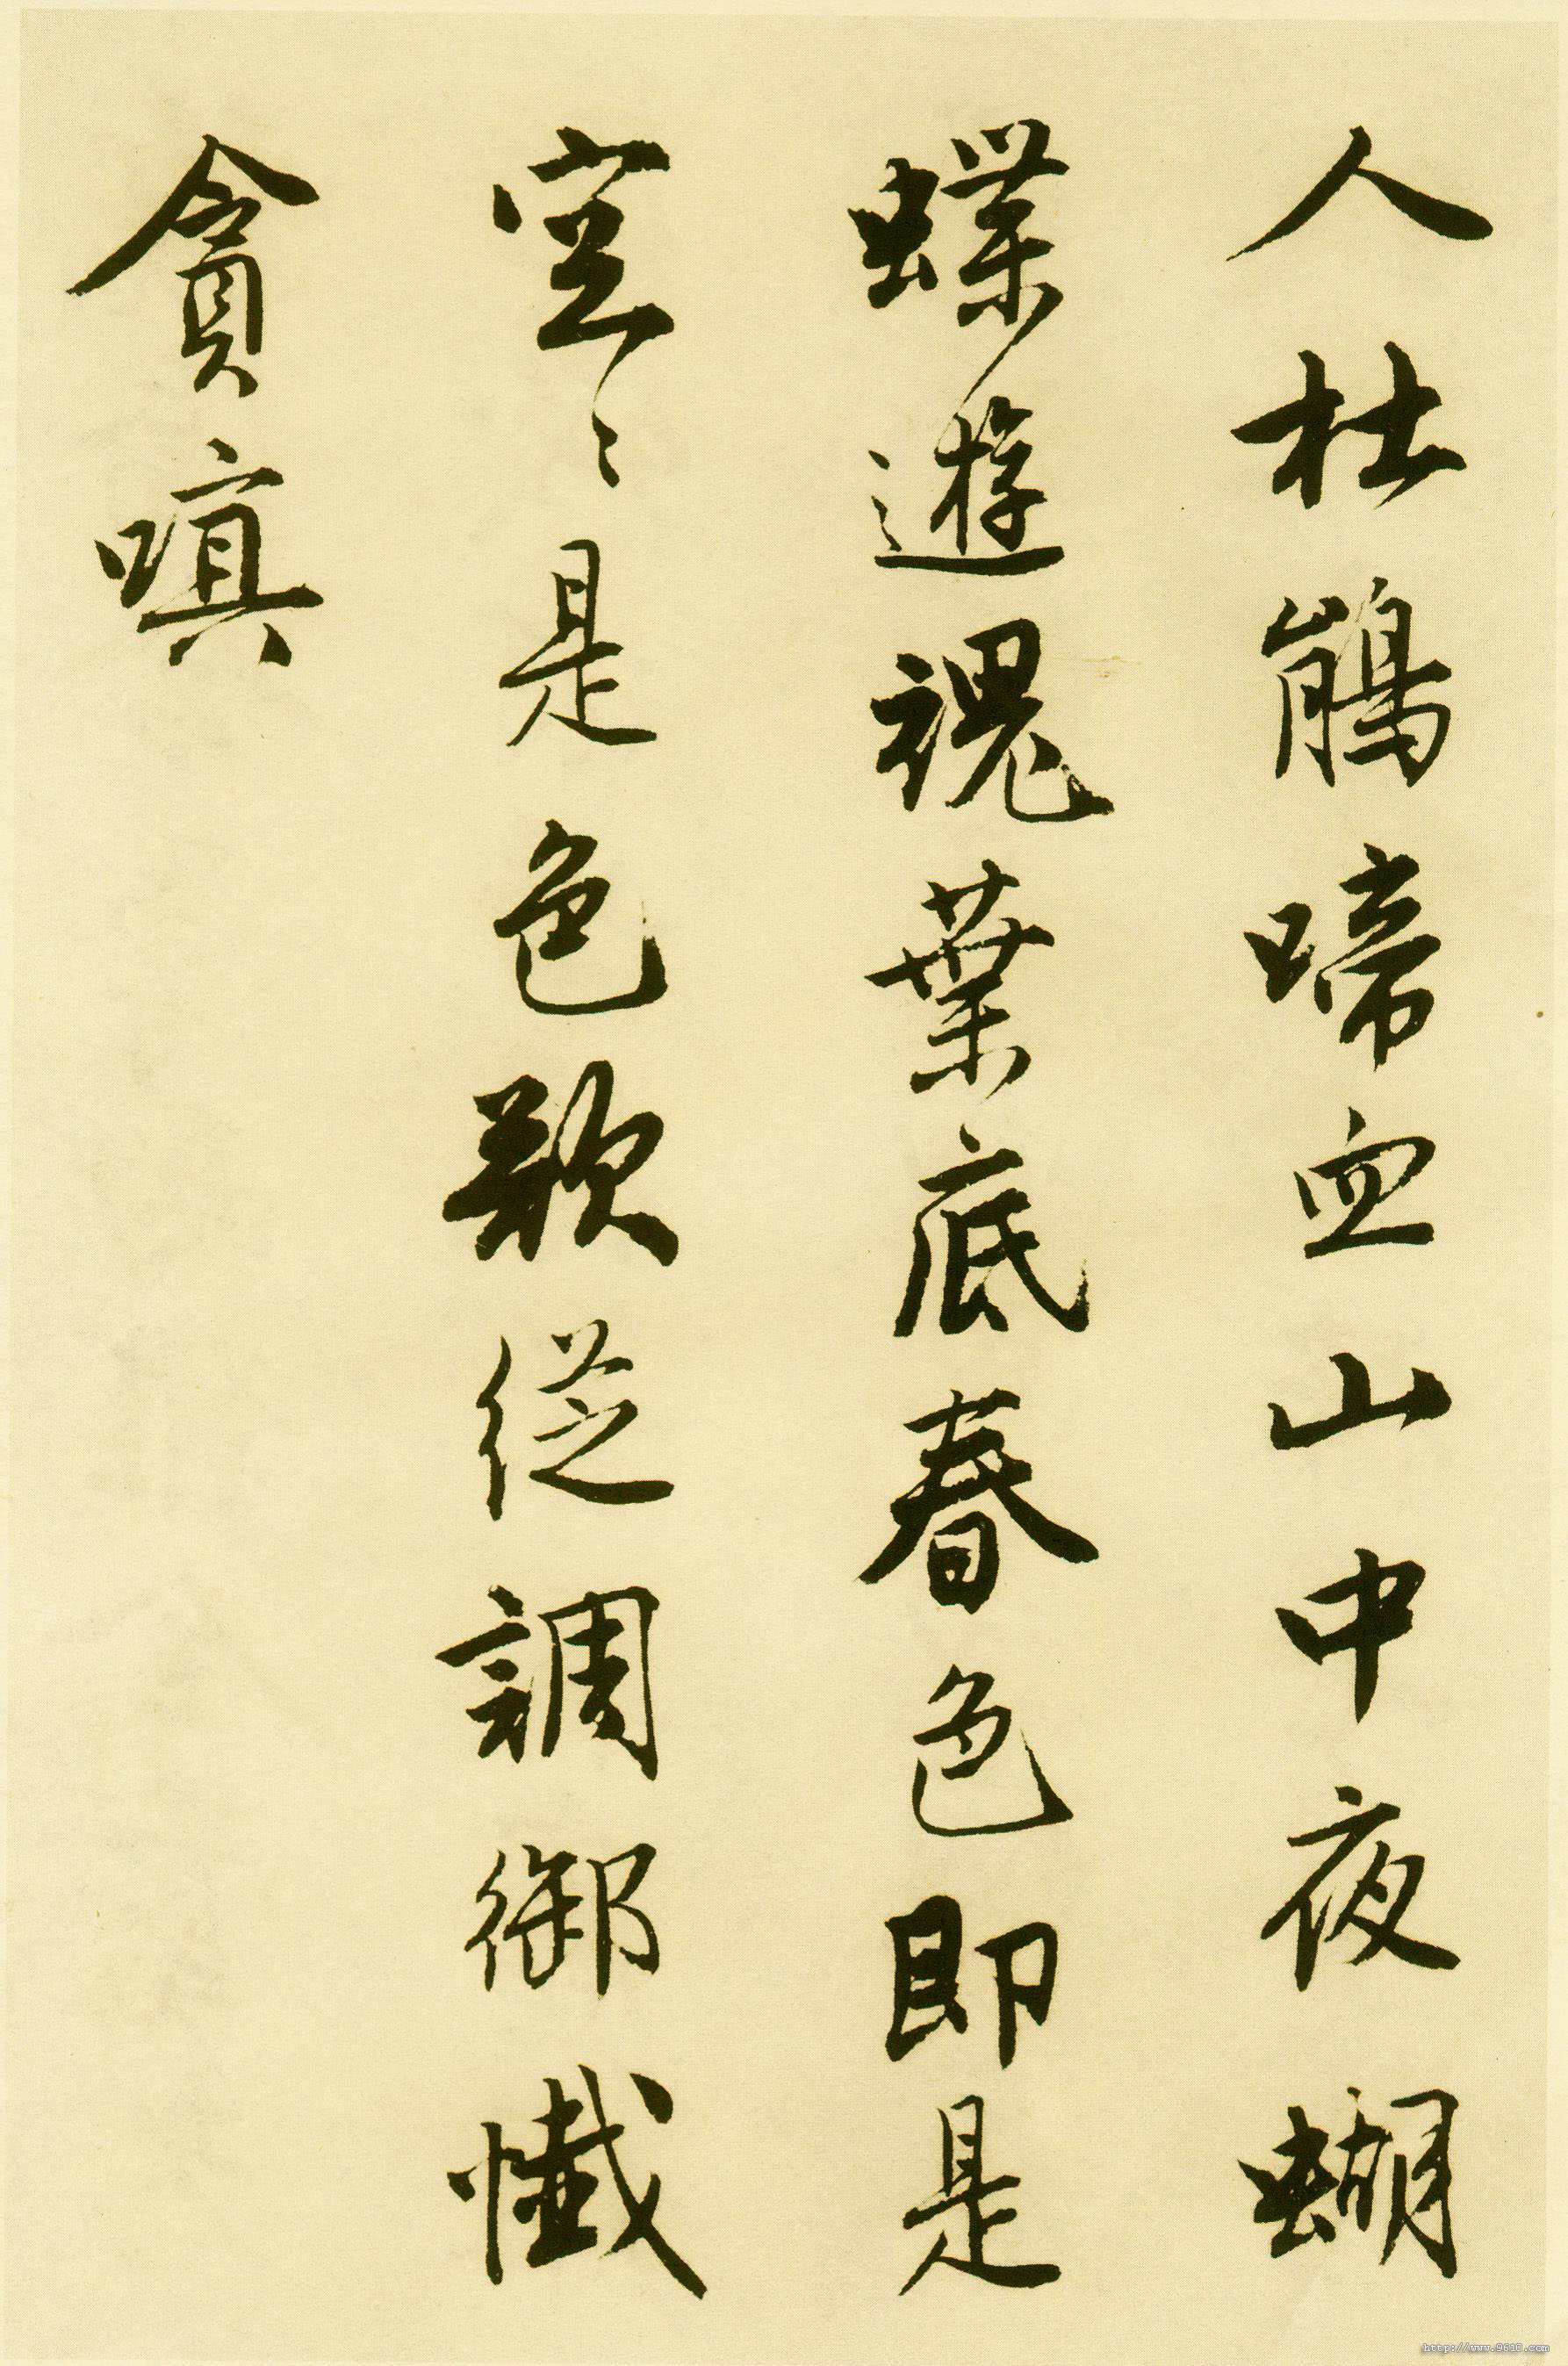 人杜鵑啼血山中夜蝴
蝶遊魂葉底春色即是
空〻是色歌從調御懺
貪嗔
http://www.9610.com